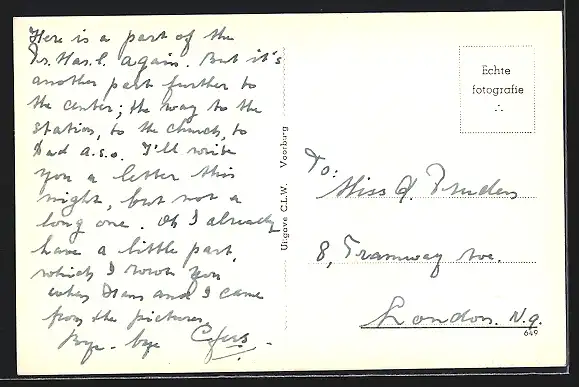 Here is a part of the
Fr. Has. l. again. But it's
another part further to
the center; the way to the
station, to the church, to
Dad a.s.o. I'll write
you a letter this
night, but not a
long one. Oh I already
have a little part,
which I wrote you
when Hans and I came
from the pictures.
Bye-bye
Uitgave C.L.W. Voorburg
Echte
fotografie
To:
Miss
8, Tramway Ave.
London. N.9.
649